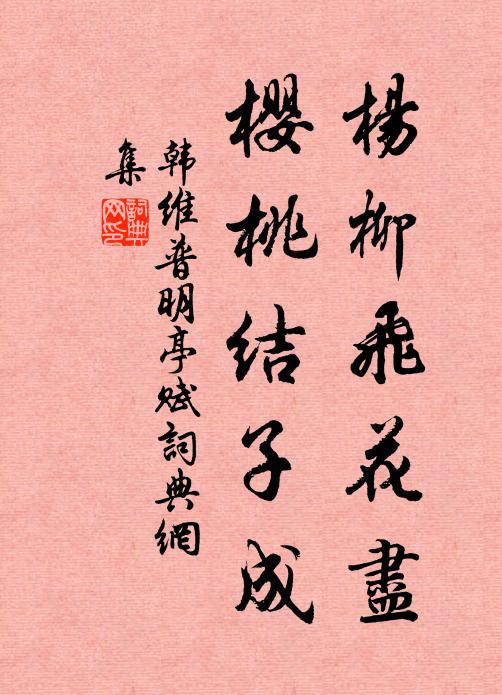 楊柳飛花盡
櫻桃結子成
韩维普明亭赋詞典網
集
詞典
网印